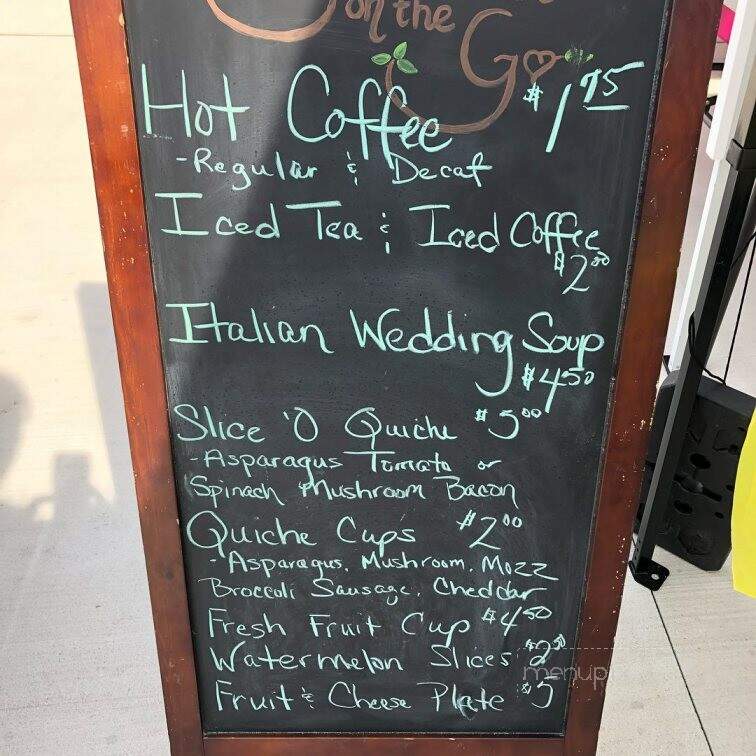 on the
Go
Hot Coffee $1.75
-Regular & Decaf
Iced Tea & Iced Coffee
$2.00
Italian Wedding Soup
$4.50
Slice 'O Quiche $5.00
-Asparagus Tomato or
Spinach Mushroom Bacon
Quiche Cups $2.00
-Asparagus, Mushroom, Mozz
Broccoli Sausage, Cheddar
Fresh Fruit Cup $4.50
Watermelon Slices $2.50
Fruit & Cheese Plate $5
menup